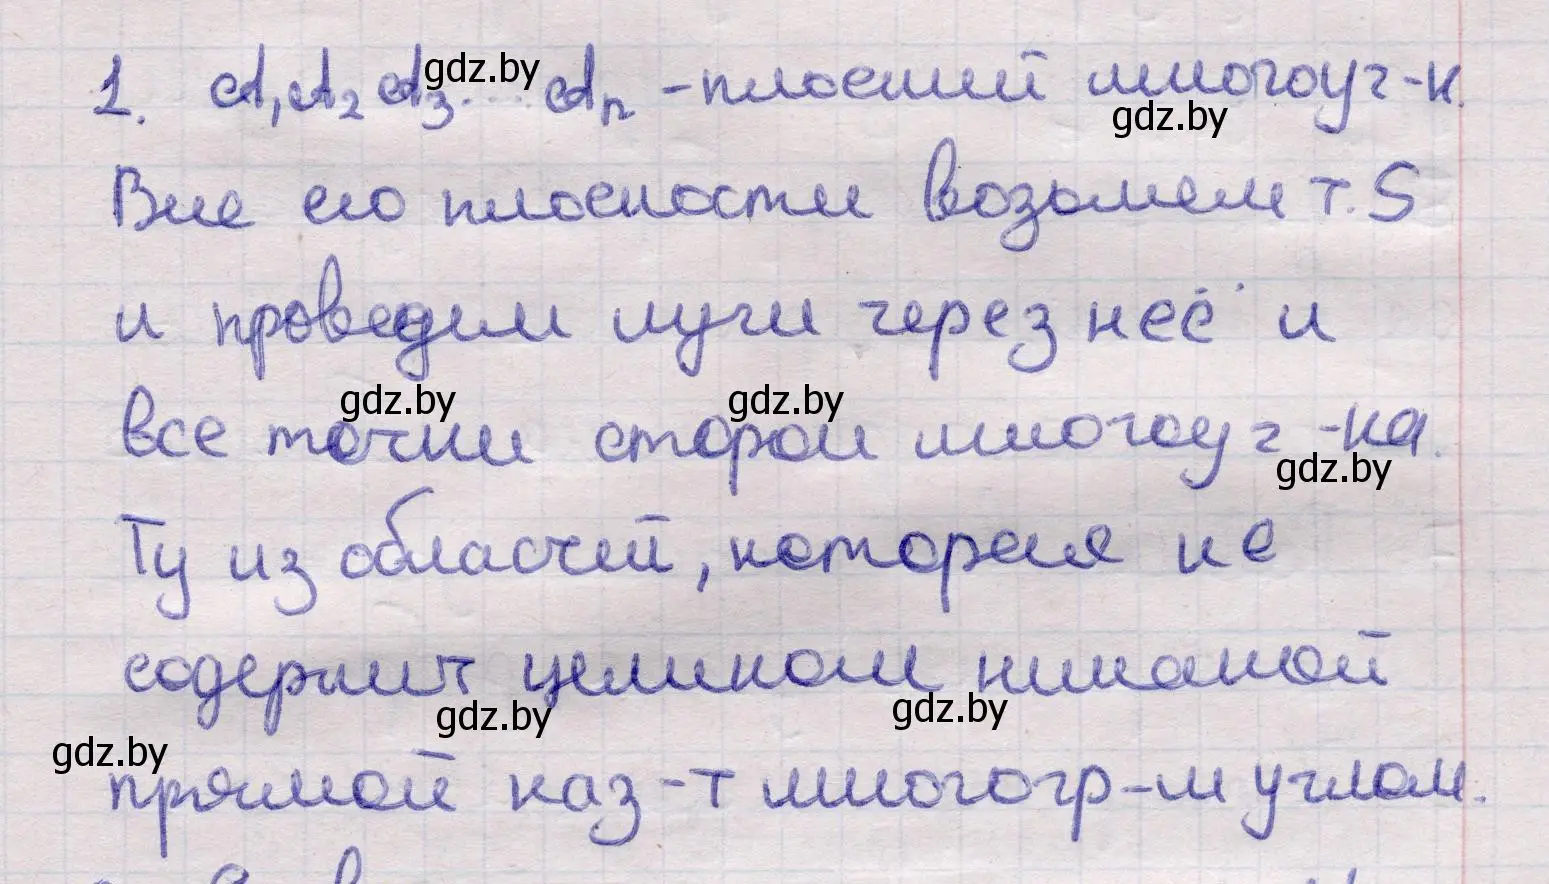 1. A₁A₂A₃... Aₙ - плоский многоуг-к.
gdz.by
gdz.by
Вне его плоскости возьмем т. S
и проведем лучи через неё и
gdz.by gdz.by
все точки сторон многоуг-ка.
gdz.by
Ту из областей, которая не
содержит целиком никакой
gdz.by gdz.by
gdz.by
прямой наз-т многогр-м углом.